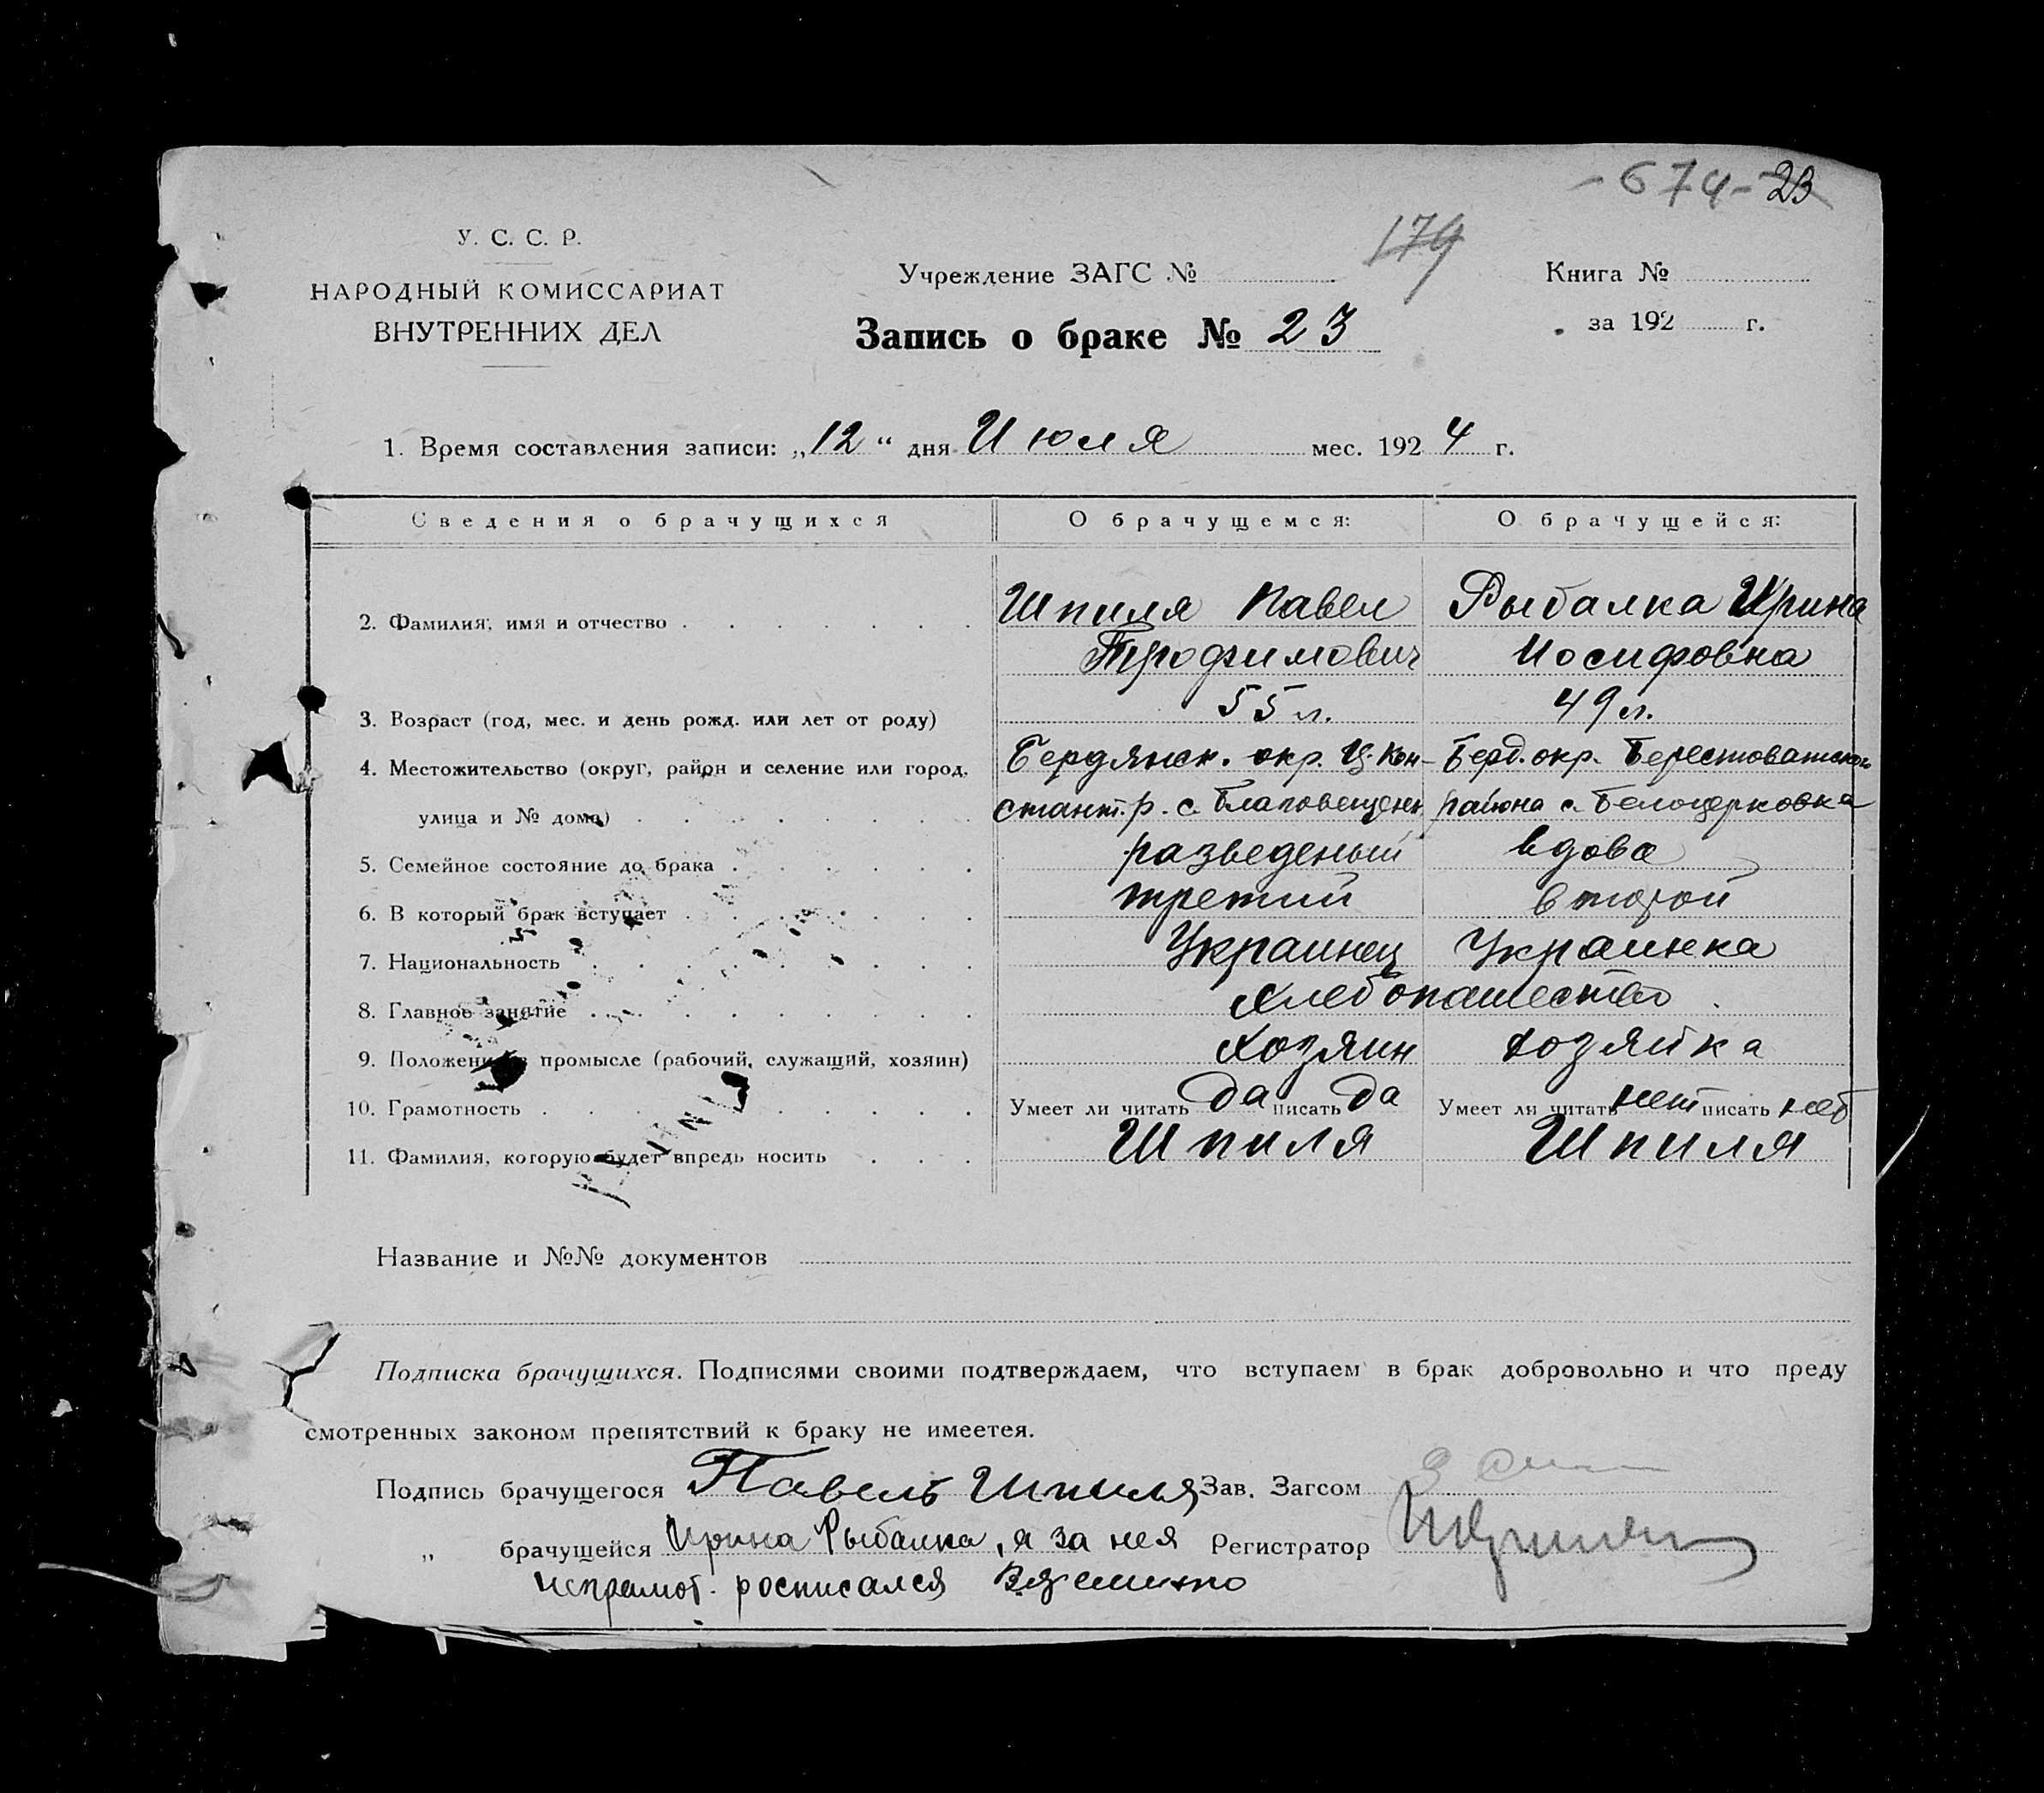 - 674 - 23
179
У. С. С. Р.
НАРОДНЫЙ КОМИССАРИАТ
ВНУТРЕННИХ ДЕЛ
Учреждение ЗАГС №
Книга №
за 192 г.
Запись о браке № 23
1. Время составления записи: „12“ дня Июля мес. 1924 г.
Сведения о брачущихся О брачущемся: О брачущейся:
2. Фамилия, имя и отчество Шпиля Павел Рыбалка Ирина
Трофимович Иосифовна
3. Возраст (год, мес. и день рожд. или лет от роду) 55 л. 49 л.
4. Местожительство (округ, район и селение или город, Бердянск. окр. Ц. Кон- Берд. окр. Берестоватского
улица и № дома) стант. р. с. Благовещенк района с. Белоцерковка
5. Семейное состояние до брака разведеный вдова
6. В который брак вступает третий второй
7. Национальность Украинец Украинка
8. Главное занятие Хлебопашество
9. Положение в промысле (рабочий, служащий, хозяин) Хозяин Хозяйка
10. Грамотность Умеет ли читать да писать да Умеет ли читать нет писать нет
11. Фамилия, которую будет впредь носить Шпиля Шпиля
Название и №№ документов
Подписка брачущихся. Подписями своими подтверждаем, что вступаем в брак добровольно и что преду
смотренных законом препятствий к браку не имеетея.
Подпись брачущегося Павель Шпиля Зав. Загсом
„ брачущейся Ирина Рыбалка, а за нея Регистратор
неграмот. росписался